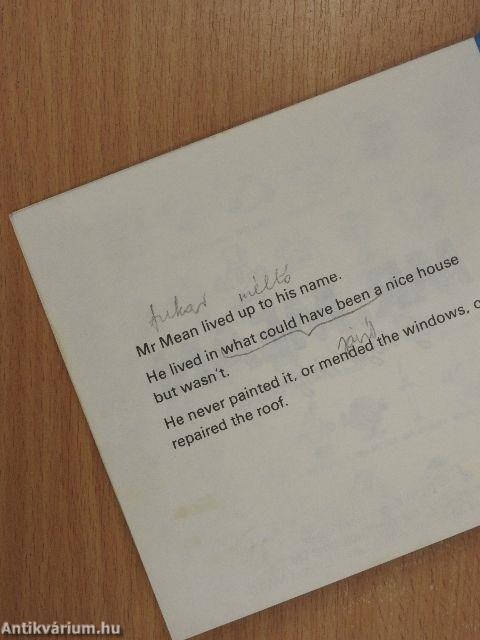 fukar méltó
Mr Mean lived up to his name.
He lived in what could have been a nice house
but wasn't.
javít
He never painted it, or mended the windows, o
repaired the roof.
Antikvárium.hu